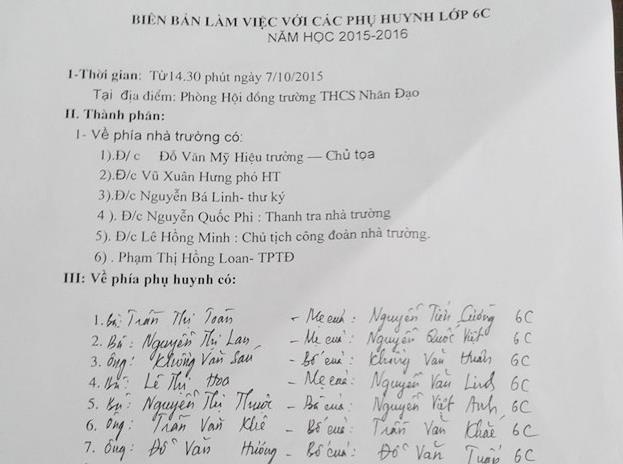 BIÊN BẢN LÀM VIỆC VỚI CÁC PHỤ HUYNH LỚP 6C
NĂM HỌC 2015-2016
I-Thời gian: Từ14.30 phút ngày 7/10/2015
Tại địa điểm: Phòng Hội đồng trường THCS Nhân Đạo
II. Thành phần:
1- Về phía nhà trường có:
1).Đ/ c Đỗ Văn Mỹ Hiệu trường — Chủ tọa
2).Đ/c Vũ Xuân Hưng phó HT
3).Đ/c Nguyễn Bá Linh- thư ký
4 ). Đ/c Nguyễn Quốc Phi : Thanh tra nhà trường
5). Đ/c Lê Hồng Minh : Chủ tịch công đoàn nhà trường.
6) . Phạm Thị Hồng Loan- TPTĐ
III: Về phía phụ huynh có:
1. Bà: Trần Thị Toàn - Mẹ của: Nguyễn Tiến Cường 6C
2. Bà: Nguyễn Thị Lan - Mẹ của: Nguyễn Quốc Việt 6C
3. Ông: Khổng Văn Sáu - Bố của: Khổng Văn Huân 6C
4. Bà: Lê Thị Hoa - Mẹ của: Nguyễn Văn Linh 6C
5. Bà: Nguyễn Thị - Bà của: Nguyễn Việt Anh, 6C
6. Ông: Trần Văn Khê - Bố của: Trần Văn 6C
7. Ông: Đỗ Văn Hướng - Bố của: Đỗ Văn Tuấn 6C